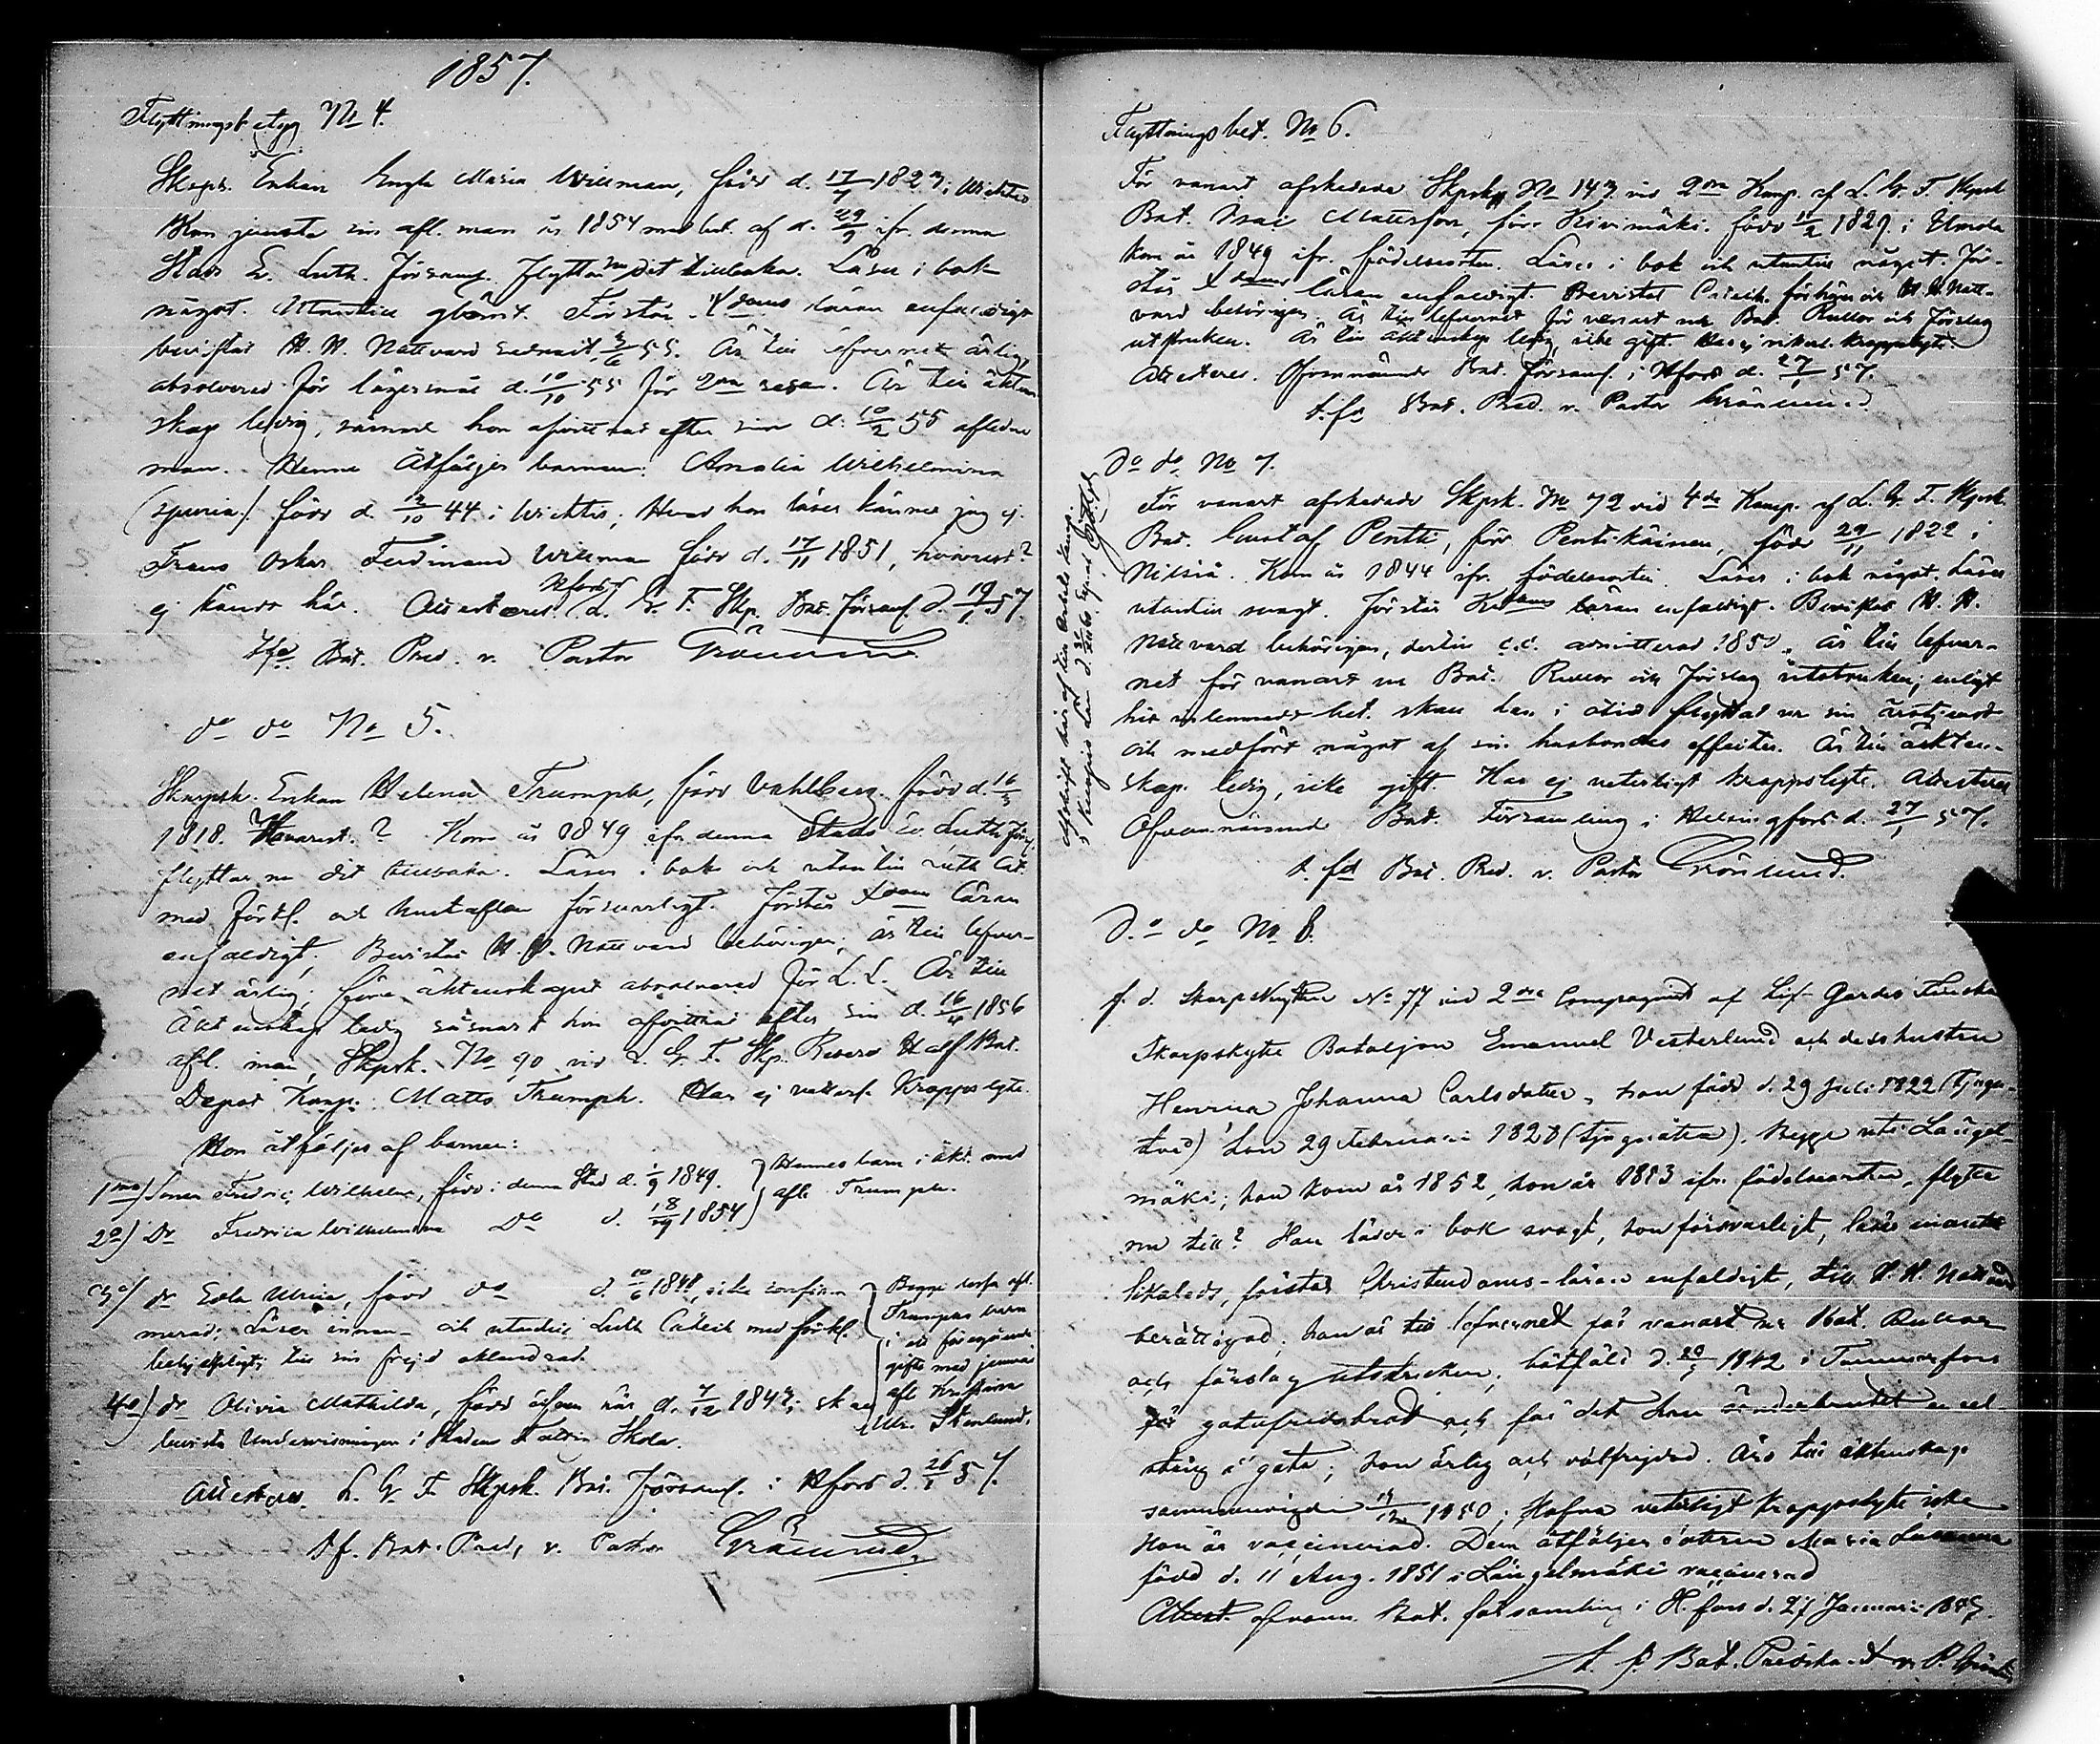 1857.
Flyttningsbetyg No 4.
Skpsk. Enkan Maria Willman, född d. 17/7 1823, i Wichtis
Kom jemte sin afl. man år 1854 med bet. af d. 29/9 ifr. denna
Stads Ev. Luth. Församl. Flyttar nu dit tillbaka. Läser i bok
något. Utantill glömt. Förstår Xdoms läran enfaldigt
bevistat H. H. Nattvard 3/6 55. Är till lefvernet ärlig,
absolverad för lägersmål d. 10/10 55 för 2dra resan. Är till äkten-
skap ledig, såsnart hon afvittrat efter sin d. 10/2 55 aflidne
man. Henne åtföljer barnen: Amalia Wilhelmina
(spuria) född d. 12/10 44 i Wichtis; Hvad hon läser känner jag ej.
Frans Oskar Ferdinand Willman född d. 17/11 1851, hvarest?
ej kändt här. Attesteras L. G. F. Skp. Bat. Församl. d. 19/1 57.
Hfors
t.f. Bat. Pred. v. Pastor Grönlund
do do No 5.
Skarpsk. Enkan Helena Trumph, född Vahlberg. född d. 16/3
1818. Hvarest? Kom år 1849 ifr. denna Stads Ev. Luth. Förs.
flyttar nu dit tillbaka. Läser i bok och utantill Luth. Cat.
med Förkl. och hustaflan försvarligt. Förstår Xdoms läran
enfaldigt. Bevistat H. H. Nattvard behörigen; är till lefver-
net ärlig; före äktenskapet absolverad för L. L. Är till
Äktenskap ledig såsnart hon afvittrat efter sin d. 16/4 1856
afl. man, Skpsk. No 90 vid L. G. F. Skp. Reserv Half Bat.
Depot Komp. Matts Trumph. Har ej natturl. Kroppslyte.
Hon åtföljes af barnen:
1mo) Sonen Fredric Wilhelm, född i denna Stad d. 1/9 1849.
2o) Dr Fredrica Wilhelmina Do d. 18/9 1854
Hennes barn i äkt. med
afl. Trumph.
3o) dr Edla Ulrica, född do d. 10/6 1841, icke confir-
merad; Läser innan- och utantill Luth. Catech. med förkl.
behjelpligt; till sin frejd oklandrad.
4o) dr Olivia Mathilda, född äfven här d. 7/12 1843; skall
bevista Undervisningen i Stadens Skola.
Begge dessa afl.
Trumphs barn
i ett föregående
gifte med
afl. Kristina
Ulr. Stenlund.
Attesteras L. G. F. Skpsk. Bat. Församl. i Hfors d. 26/1 57.
t.f. Bat. Pred. v. Pastor Grönlund
Flyttningsbet. No 6.
För vanart afskedade Skpsk. No 143 vid 2dra Komp. af L. G. F. Skpsk.
Bat. Isac Mattsson, förr Kivimäki. född 11/2 1829 i Umola
kom år 1849 ifr. födelseorten. Läser i bok och utantill något. För-
står Xdoms läran enfaldigt. Bevistat Catech. förhören och H. H. Natt-
vard behörigen. Är till lefvernet för vanart ur Bat. Rullor och Förslag
utstruken. Är till äktenskap ledig, icke gift. Har ej kroppslyte.
Attesteras. Ofvannämnde Bat. Församl. i Hfors d. 27/1 57.
t.f. Bat. Pred. v. Pastor Grönlund
do do No 7.
För vanart afskedade Skpsk. No 72 vid 4de Komp. af L. G. F. Skpsk.
Bat. Gustaf Pentti, förr Pentikäinen, född 29/11 1822 i
Nilsiä. Kom år 1844 ifr. födelseorten. Läser i bok något. Läser
utantill svagt. Förstår Xdoms läran enfaldigt. Bevistat H. H.
Nattvard behörigen, dertill admitterad 1850. Är till lefver-
net för vanart ur Bat. Rullor och Förslag utstruken; enligt
hit inlemnadt bet. skall han i otid flyttat ur sin årstjenst
och medfört något af sin husbondes effecter. Är till äkten-
skap ledig, icke gift. Har ej naturligt kroppslyte. Attesteras
Ofvannämnde Bat. Församling i Helsingfors d. 27/1 57.
t.fd Bat. Pred. v. Pastor Grönlund.
Do do No 8.
f. d. Skarpskytten No 77 vid 2dra Compagniet af Lif-Gardes Finska
Skarpskytte Bataljon Emanuel Vesterlund och dess hustru
Henrica Johanna Carlsdotter, han född d. 29 Juli 1822 (tjugu-
två) hon 29 Februari 1828 (tjuguåtta). Begge uti Längel-
mäki; han kom år 1852, hon år 1853 ifr. födelseorten, flytta
nu till? Han läser i bok svagt, hon försvarligt, läser
likaledes, förstår Christendoms-läran enfaldigt, till H. H. Nattvard
berättigad; han är till lefvernet för vanart ur Bat. Rullor
och förslag utstruken, bötfäld d. 20/1 1842 i Tammerfors
för gatufridsbrott och för det han sönderbrutit en led-
stång å gata; hon ärlig och välfrejdad. Äro till äktenskap
sammanvigda 19/12 1850; Hafva veterligt kroppslyte icke
Hon är vaccinerad. Dem åtföljer dottren Maria
född d. 11 Aug. 1851 i Längelmäki vaccinerad
Attest. ofvann. Bat. församling i H:fors d. 27 Januari 1857.
t. f. Bat. Predikant v. P.